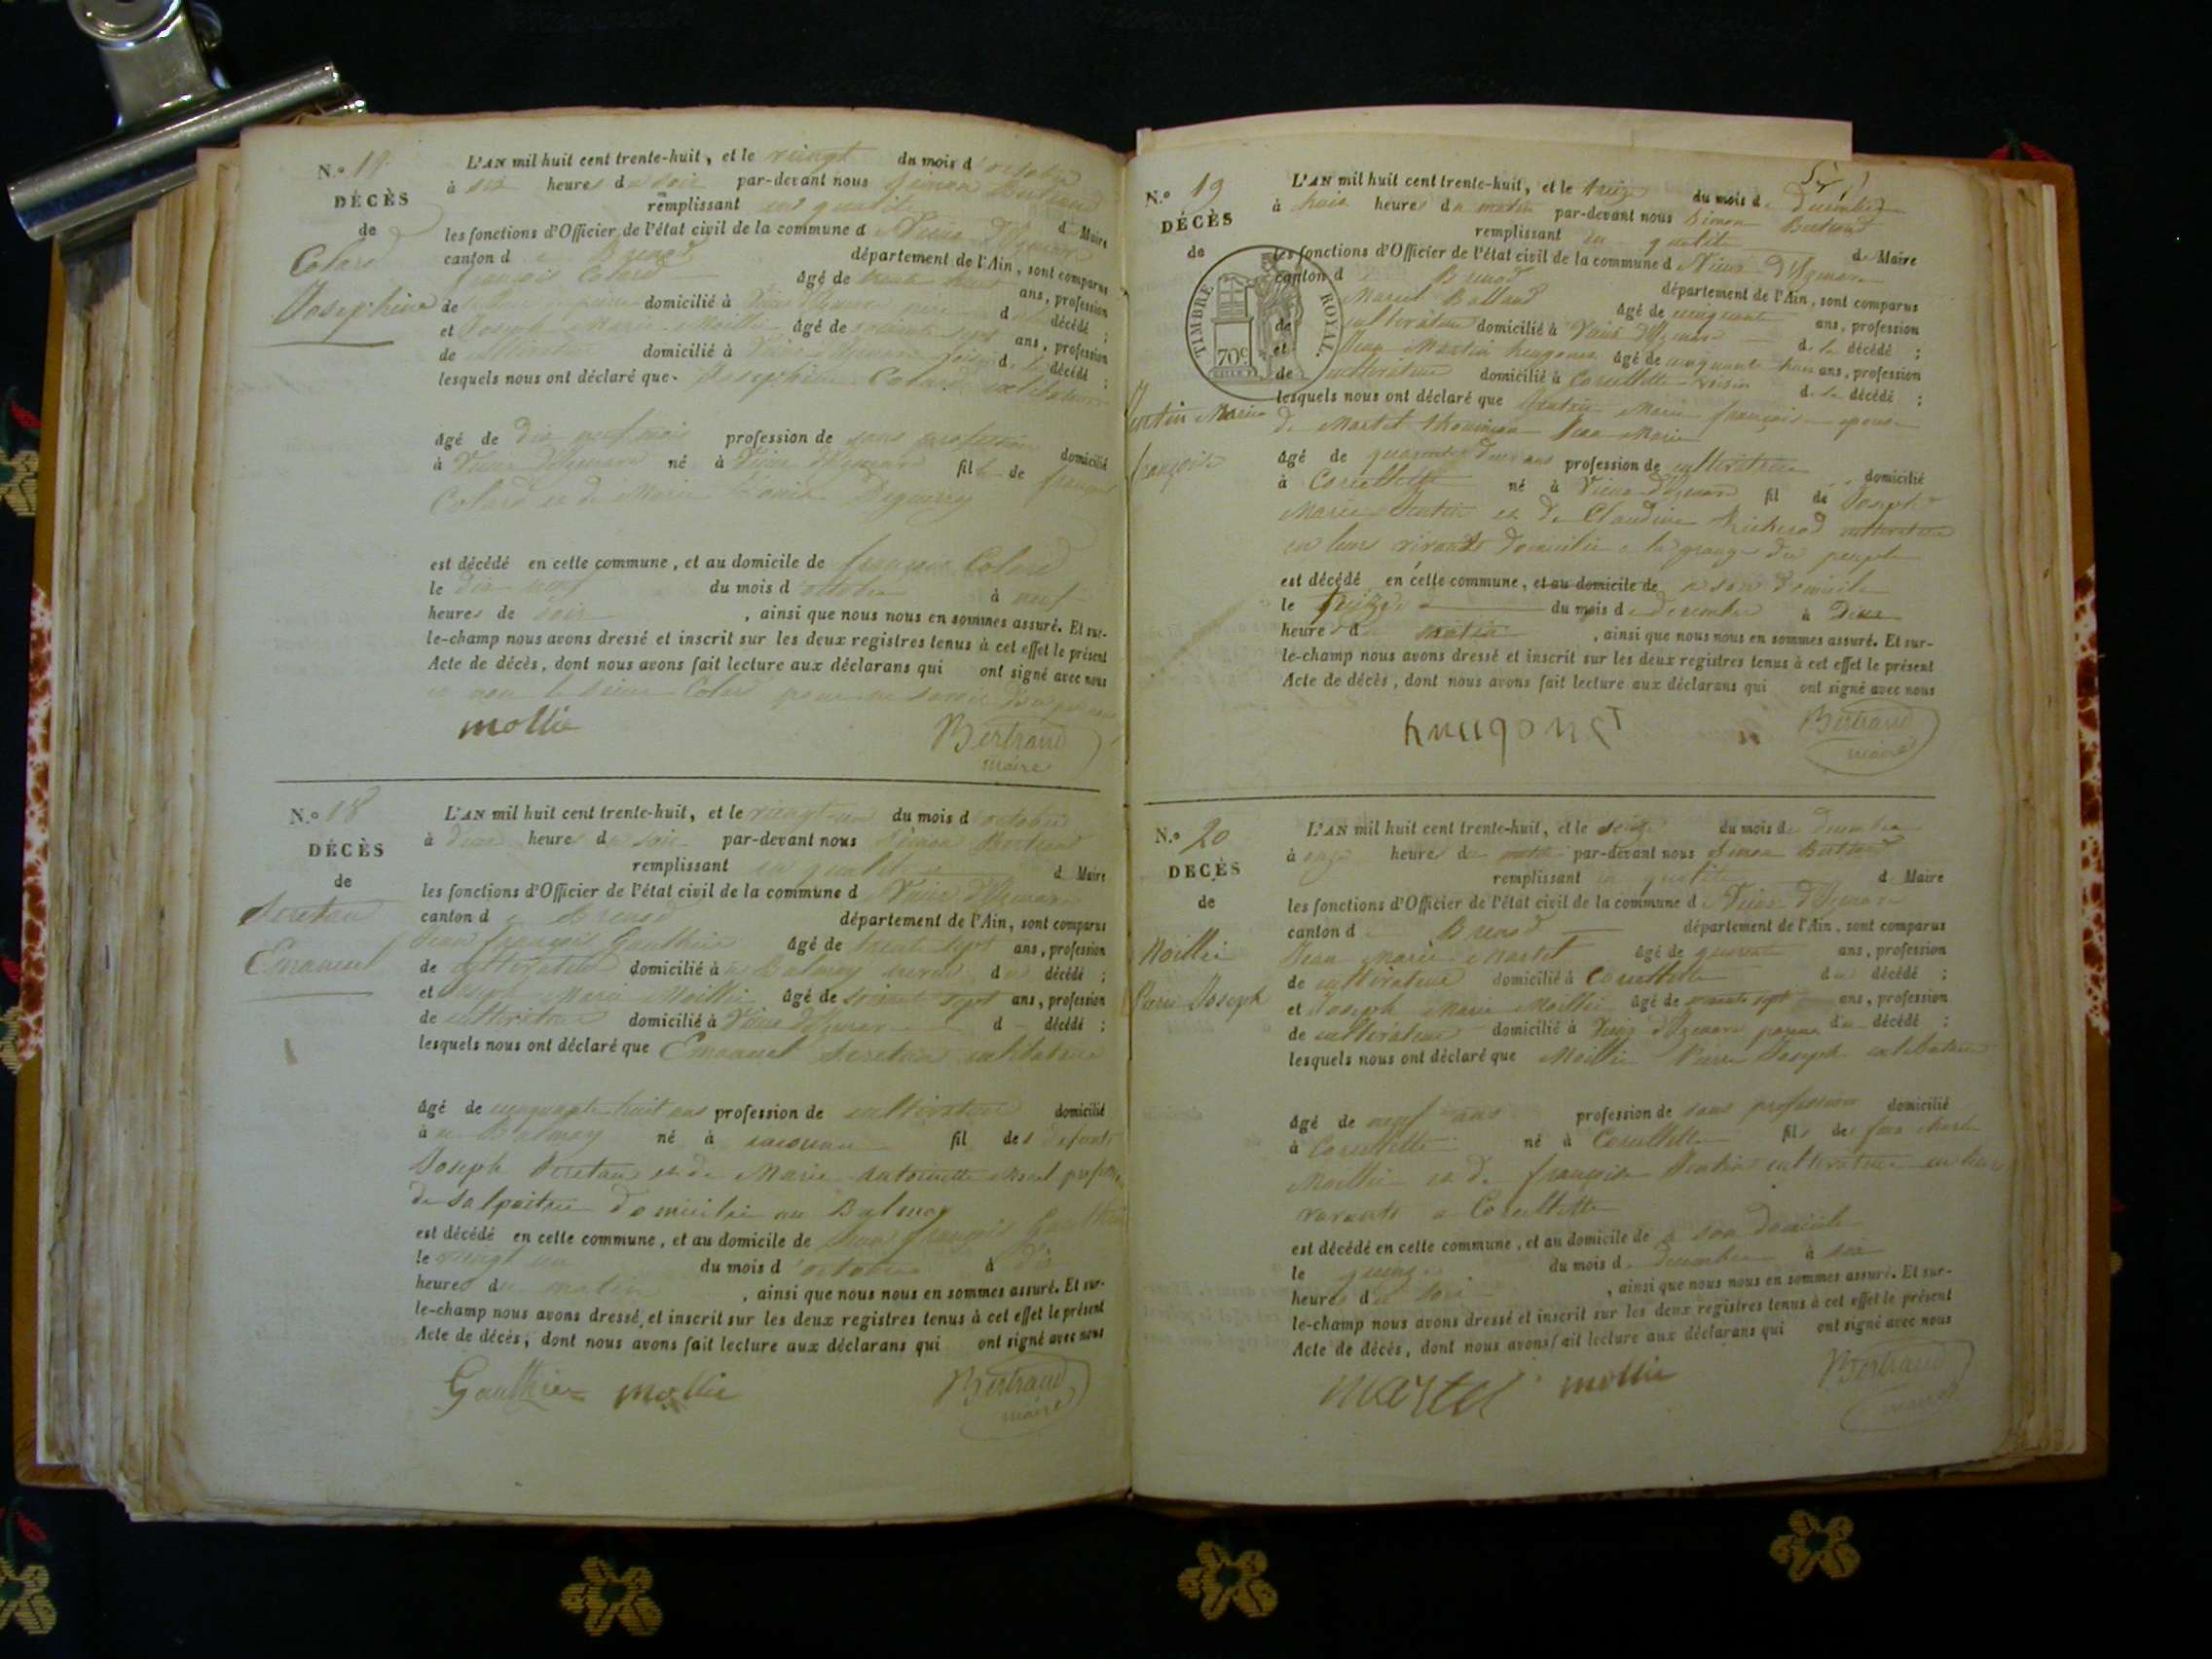 N.º 17
DÉCÈS
de
Colard
Josephine
L'AN mil huit cent trente-huit, et le vingt du mois d'octobre
à six heures du soir par-devant nous Simon Bertrand
remplissant en qualité de Maire
les fonctions d'Officier de l'état civil de la commune de Vieux d'Izenave
canton de Brenod département de l'Ain, sont comparus
françois Colard âgé de trente huit ans, profession
de domicilié à Vieux d'Izenave père de la décédé ;
et Joseph Marie Moillie âgé de soixante sept ans, profession
de cultivateur domicilié à Vieux d'Izenave voisin de la décédé ;
lesquels nous ont déclaré que Josephine Colard celibataire
âgé de dix neuf mois profession de sans profession domicilié
à Vieux d'Izenave né à Vieux d'Izenave fille de françois
Colard et de Marie Louise
est décédé en cette commune, et au domicile de françois Colard
le dix neuf du mois d'octobre à neuf
heures de soir, ainsi que nous nous en sommes assuré. Et sur-
le-champ nous avons dressé et inscrit sur les deux registres tenus à cet effet le présent
Acte de décès, dont nous avons fait lecture aux déclarans qui ont signé avec nous
et non le sieur Colard pour ne savoir
mollie Bertrand
maire
N.º 18
DÉCÈS
de
Secretan
Emanuel
L'AN mil huit cent trente-huit, et le vingt-un du mois d'octobre
à deux heures du soir par-devant nous Simon Bertrand
remplissant en qualité de Maire
les fonctions d'Officier de l'état civil de la commune de Vieux d'Izenave
canton de Brenod département de l'Ain, sont comparus
Jean françois Gauthier âgé de trente sept ans, profession
de cultivateur domicilié à Balmay neveu du décédé ;
et Joseph Marie Moillie âgé de soixante sept ans, profession
de cultivateur domicilié à Vieux d'Izenave d décédé ;
lesquels nous ont déclaré que Emanuel Secretan celibataire
âgé de cinquante huit ans profession de cultivateur domicilié
à Balmay né à inconnu fil des defunts
Joseph Secretan et de Marie Antoinette
de Salpaitre domicilié au Balmay
est décédé en cette commune, et au domicile de Jean françois Gauthier
le vingt un du mois d'octobre à dix
heures du matin, ainsi que nous nous en sommes assuré. Et sur-
le-champ nous avons dressé et inscrit sur les deux registres tenus à cet effet le présent
Acte de décès, dont nous avons fait lecture aux déclarans qui ont signé avec nous
Gauthier mollie Bertrand
maire
N.º 19
DÉCÈS
de
TIMBRE ROYAL
70c
Marie
françoise
L'AN mil huit cent trente-huit, et le treize du mois de Decembre
à trois heures du matin par-devant nous Simon Bertrand
remplissant en qualité de Maire
les fonctions d'Officier de l'état civil de la commune de Vieux d'Izenave
canton de Brenod département de l'Ain, sont comparus
Marcel Balland âgé de cinquante ans, profession
de cultivateur domicilié à Vieux d'Izenave de la décédé ;
et Jean Martin hugonet âgé de cinquante trois ans, profession
de cultivateur domicilié à Corcellette voisin de la décédé ;
lesquels nous ont déclaré que Marie françoise epouse
de Martel Jean Marie
âgé de quarante deux ans profession de cultivatrice domicilié
à Corcellette né à Vieux d'Izenave fil de Joseph
Marie et de Claudine cultivateur
en leur vivants domicilié a la grange du
est décédé en cette commune, et au domicile de a son Domicile
le treize du mois de decembre à Deux
heures du matin, ainsi que nous nous en sommes assuré. Et sur-
le-champ nous avons dressé et inscrit sur les deux registres tenus à cet effet le présent
Acte de décès, dont nous avons fait lecture aux déclarans qui ont signé avec nous
hugonet Bertrand
maire
N.º 20
DÉCÈS
de
Moillie
Pierre Joseph
L'AN mil huit cent trente-huit, et le seize du mois de Decembre
à onze heures du matin par-devant nous Simon Bertrand
remplissant en qualité de Maire
les fonctions d'Officier de l'état civil de la commune de Vieux d'Izenave
canton de Brenod département de l'Ain, sont comparus
Jean Marie Martel âgé de quarante ans, profession
de cultivateur domicilié à Corcellette du décédé ;
et Joseph Marie Moillie âgé de soixante sept ans, profession
de cultivateur domicilié à Vieux d'Izenave du décédé ;
lesquels nous ont déclaré que Moillie Pierre Joseph celibataire
âgé de neuf ans profession de sans profession domicilié
à Corcellette né à Corcellette fils de
Moillie et de françoise cultivateur en leur
vivants a Corcellette
est décédé en cette commune, et au domicile de a son domicile
le quinze du mois de Decembre à six
heures du soir, ainsi que nous nous en sommes assuré. Et sur-
le-champ nous avons dressé et inscrit sur les deux registres tenus à cet effet le présent
Acte de décès, dont nous avons fait lecture aux déclarans qui ont signé avec nous
martel mollie Bertrand
maire